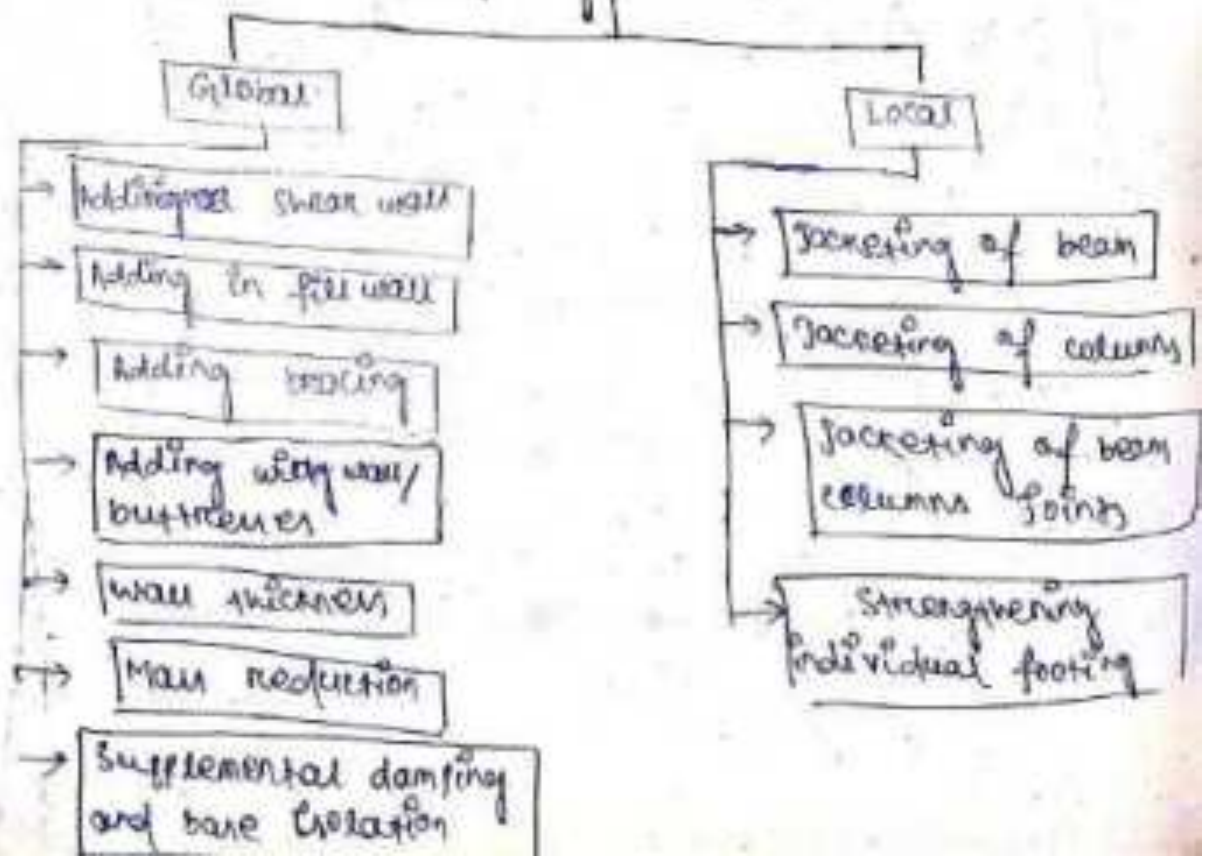 Global
Local
Adding shear wall
Adding in fill wall
Adding bracing
Adding wing wall/
buttresses
Wall thickness
Mass reduction
Supplemental damping
and base Isolation
Jacketing of beam
Jacketing of columns
Jacketing of beam
columns joints
Strengthening
individual footing